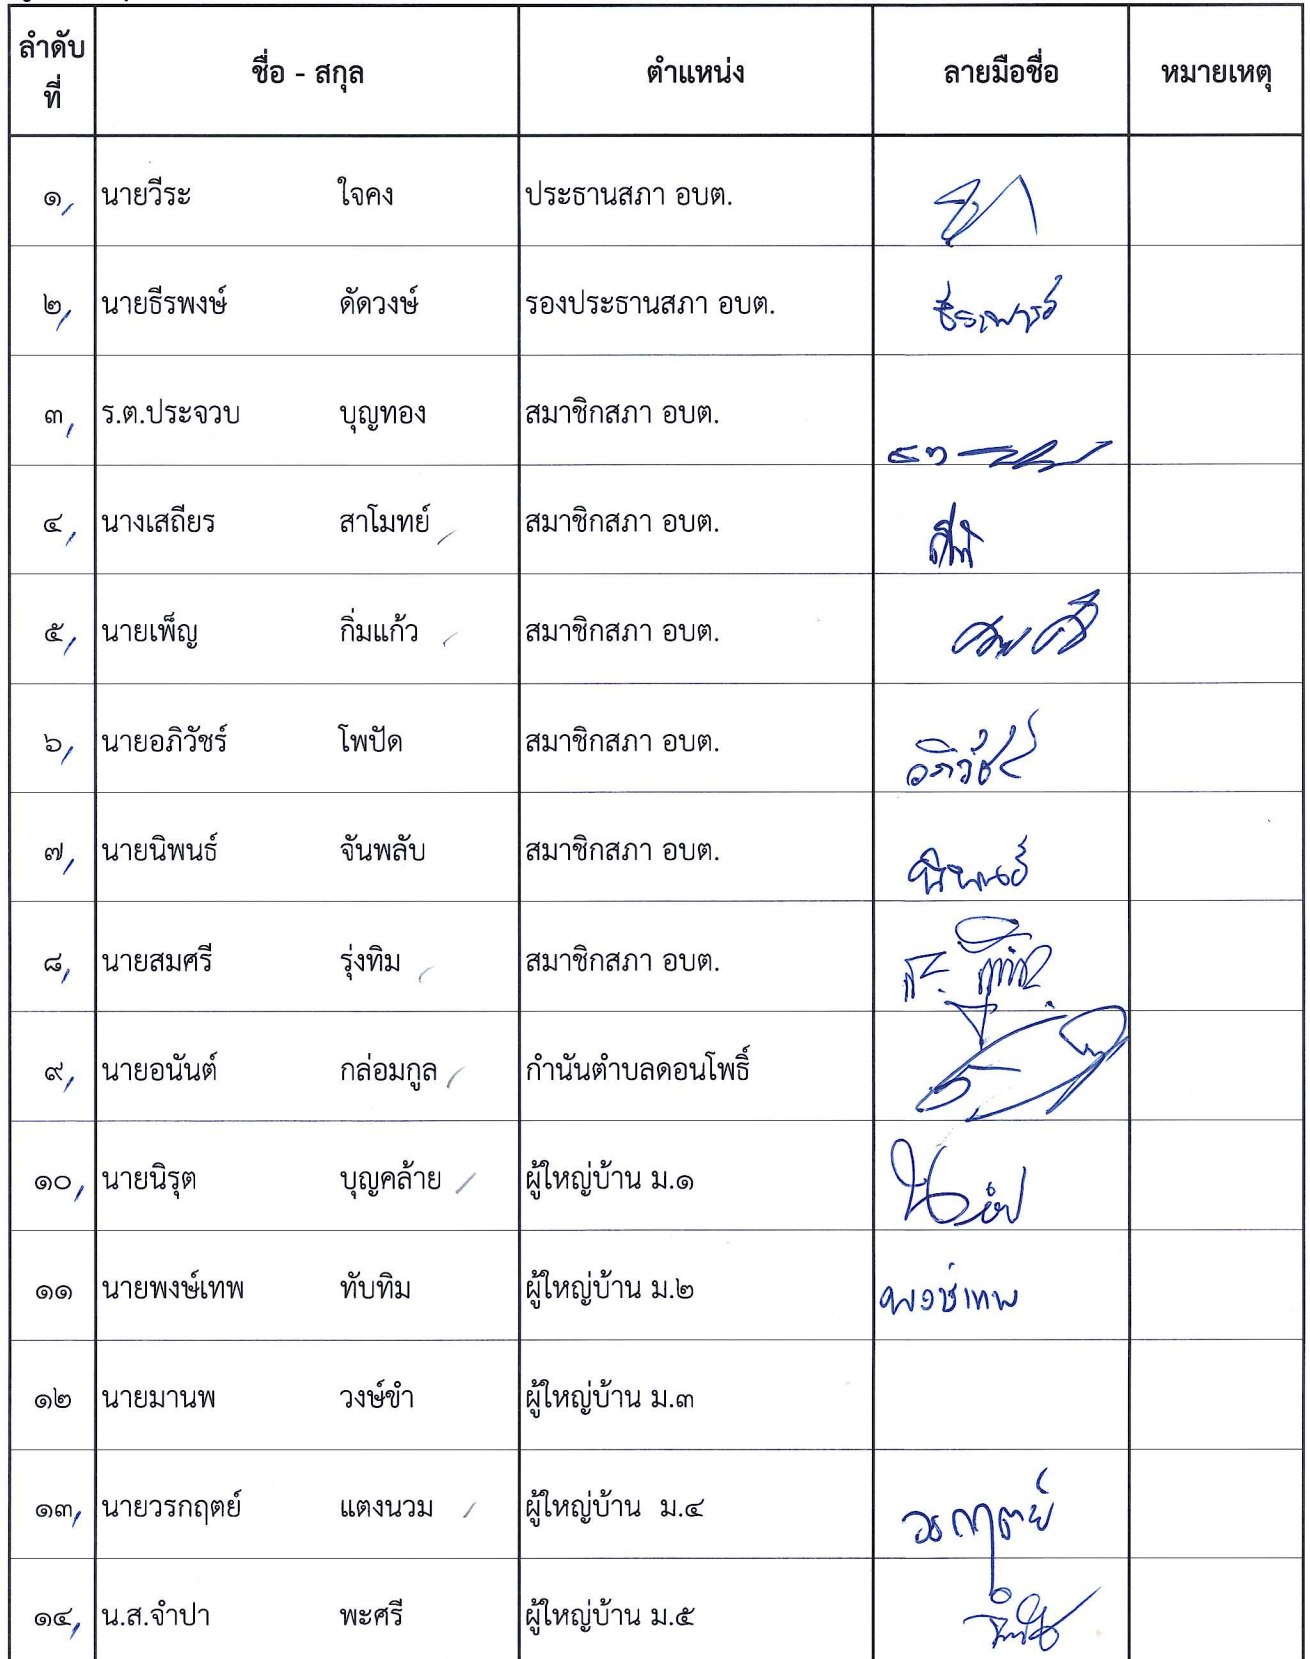 ลำดับ ชื่อ - สกุล ตำแหน่ง ลายมือชื่อ หมายเหตุ
ที่
๑ นายวีระ ใจคง ประธานสภา อบต.
๒ นายธีรพงษ์ ดัดวงษ์ รองประธานสภา อบต.
๓ ร.ต.ประจวบ บุญทอง สมาชิกสภา อบต.
๔ นางเสถียร สาโมทย์ สมาชิกสภา อบต.
๕ นายเพ็ญ กิ่มแก้ว สมาชิกสภา อบต.
๖ นายอภิวัชร์ โพปัด สมาชิกสภา อบต. อภิวัชร์
๗ นายนิพนธ์ จันพลับ สมาชิกสภา อบต. นิพนธ์
๘ นายสมศรี รุ่งทิม สมาชิกสภา อบต.
๙ นายอนันต์ กล่อมกูล กำนันตำบลดอนโพธิ์
๑๐ นายนิรุต บุญคล้าย ผู้ใหญ่บ้าน ม.๑
๑๑ นายพงษ์เทพ ทับทิม ผู้ใหญ่บ้าน ม.๒ พงษ์เทพ
๑๒ นายมานพ วงษ์ขำ ผู้ใหญ่บ้าน ม.๓
๑๓ นายวรกฤตย์ แตงนวม ผู้ใหญ่บ้าน ม.๔ วรกฤตย์
๑๔ น.ส.จำปา พะศรี ผู้ใหญ่บ้าน ม.๕